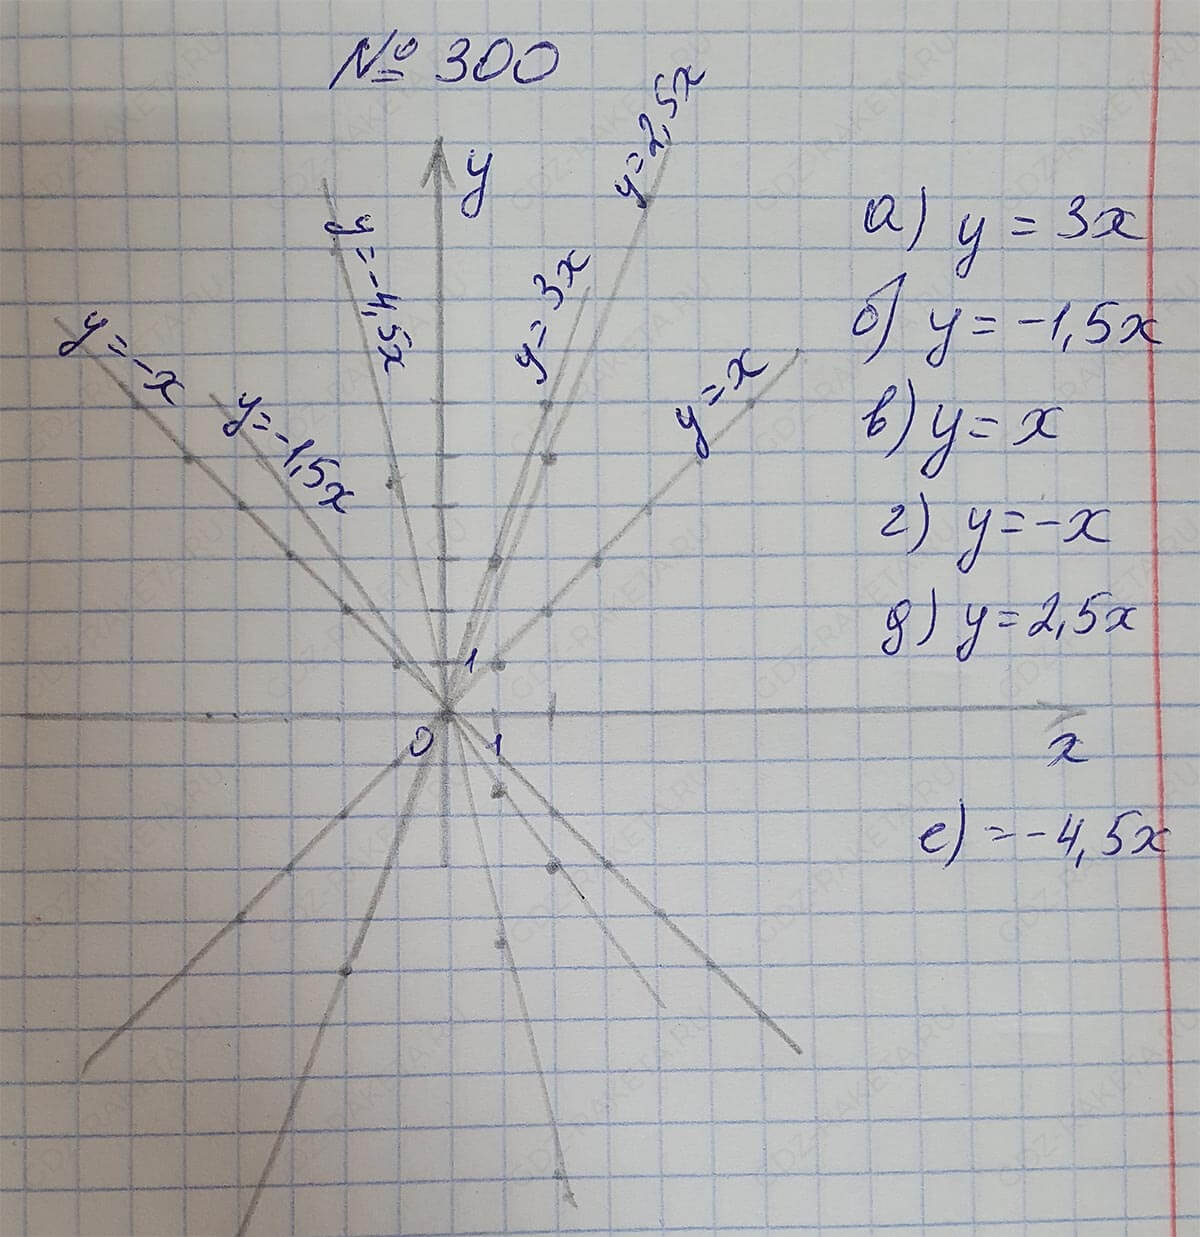 № 300
y
y=2,5x
y=-4,5x
y=3x
y=-x
y=-1,5x
y=x
1
0
1
x
а) y = 3x
б) y = -1,5x
в) y = x
г) y = -x
д) y = 2,5x
е) = -4,5x
GDZ-RAKETA.RU